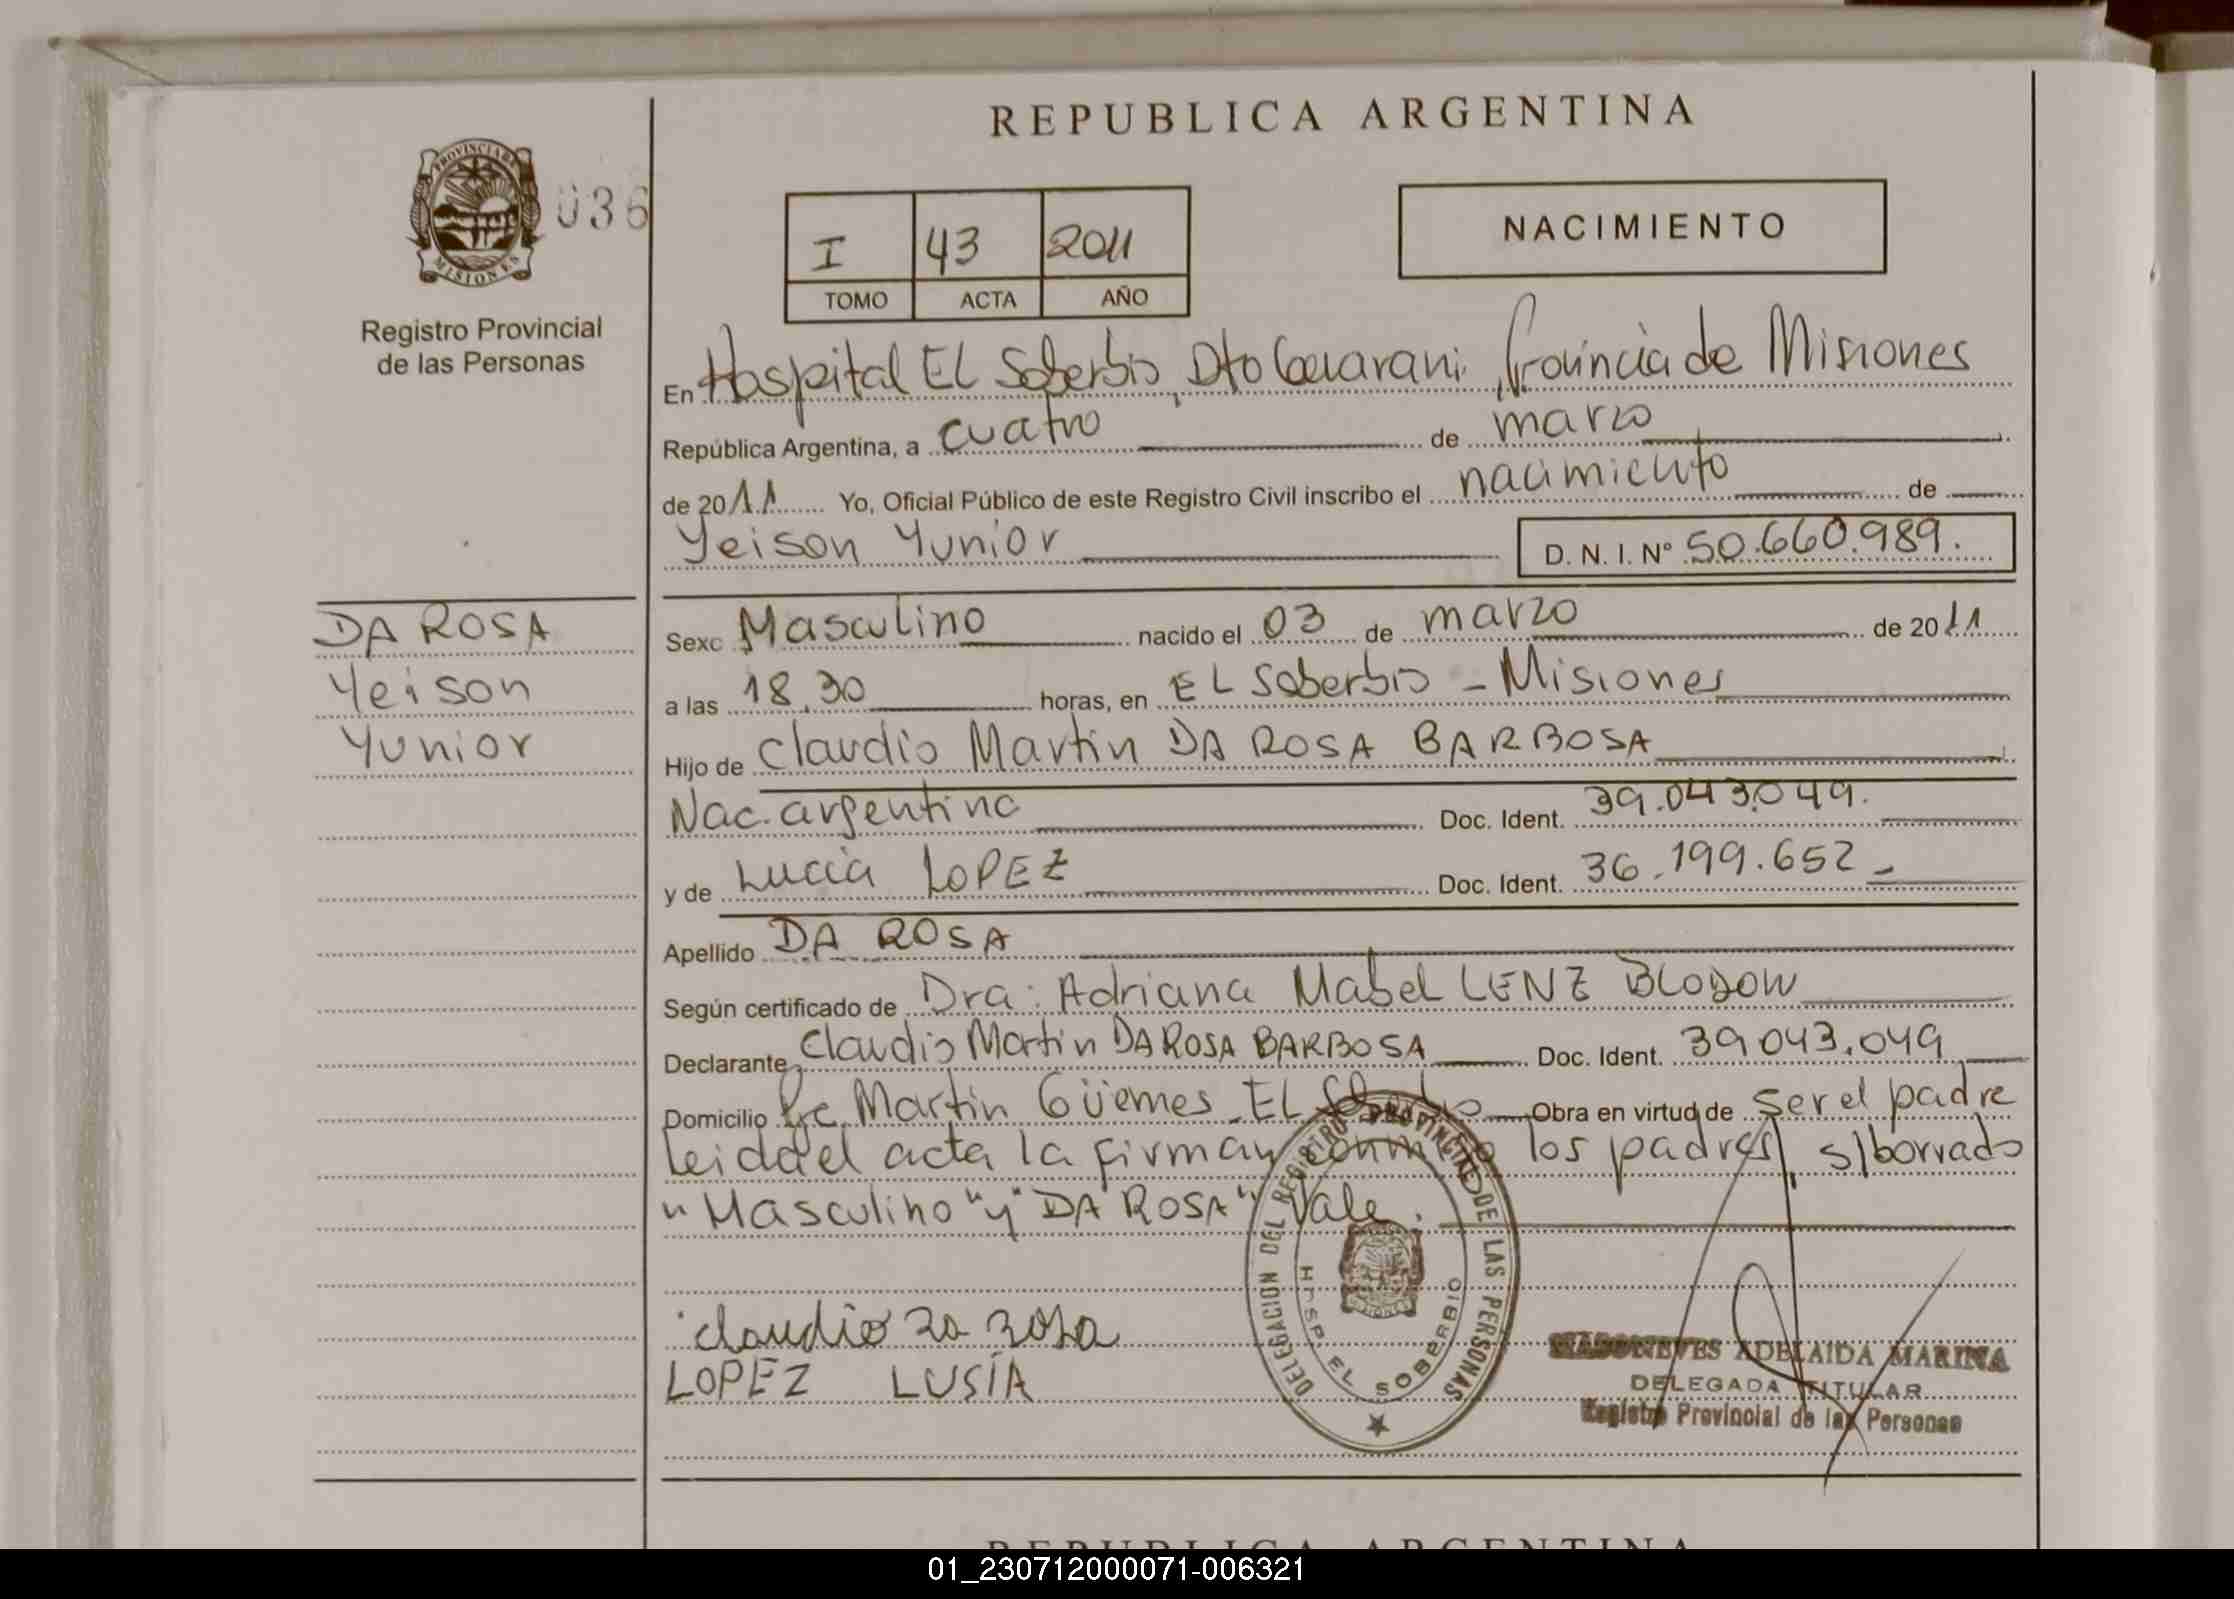 REPUBLICA ARGENTINA
PROVINCIA DE
MISIONES
036
Registro Provincial
de las Personas
I 43 2011
TOMO ACTA AÑO
NACIMIENTO
En Hospital EL Soberbio, Dto Guarani, Provincia de Misiones
República Argentina, a cuatro de marzo
de 2011 Yo, Oficial Público de este Registro Civil inscribo el nacimiento de
Yeison Yunior D. N. I. Nº 50.660.989.
DA ROSA
Yeison
Yunior
Sexo Masculino nacido el 03 de marzo de 2011
a las 18.30 horas, en EL Soberbio - Misiones
Hijo de Claudio Martin DA ROSA BARBOSA
Nac. argentina Doc. Ident. 39.043.049.
y de Lucia LOPEZ Doc. Ident. 36.199.652 -
Apellido DA ROSA
Según certificado de Dra: Adriana Mabel LENZ BLODOW
Declarante Claudio Martin DA ROSA BARBOSA Doc. Ident. 39043.049
Domicilio Martin Güemes - EL Soberbio Obra en virtud de ser el padre
Leida el acta la firman conmigo los padres, s/borrado
"Masculino" y "DA ROSA" Vale.
DELEGACION DEL REGISTRO PROVINCIAL DE LAS PERSONAS
HOSP. EL SOBERBIO
claudio Da Rosa
LOPEZ LUSÍA
ADELAIDA MARINA
DELEGADA TITULAR
Registro Provincial de las Personas
REPUBLICA ARGENTINA
01_230712000071-006321